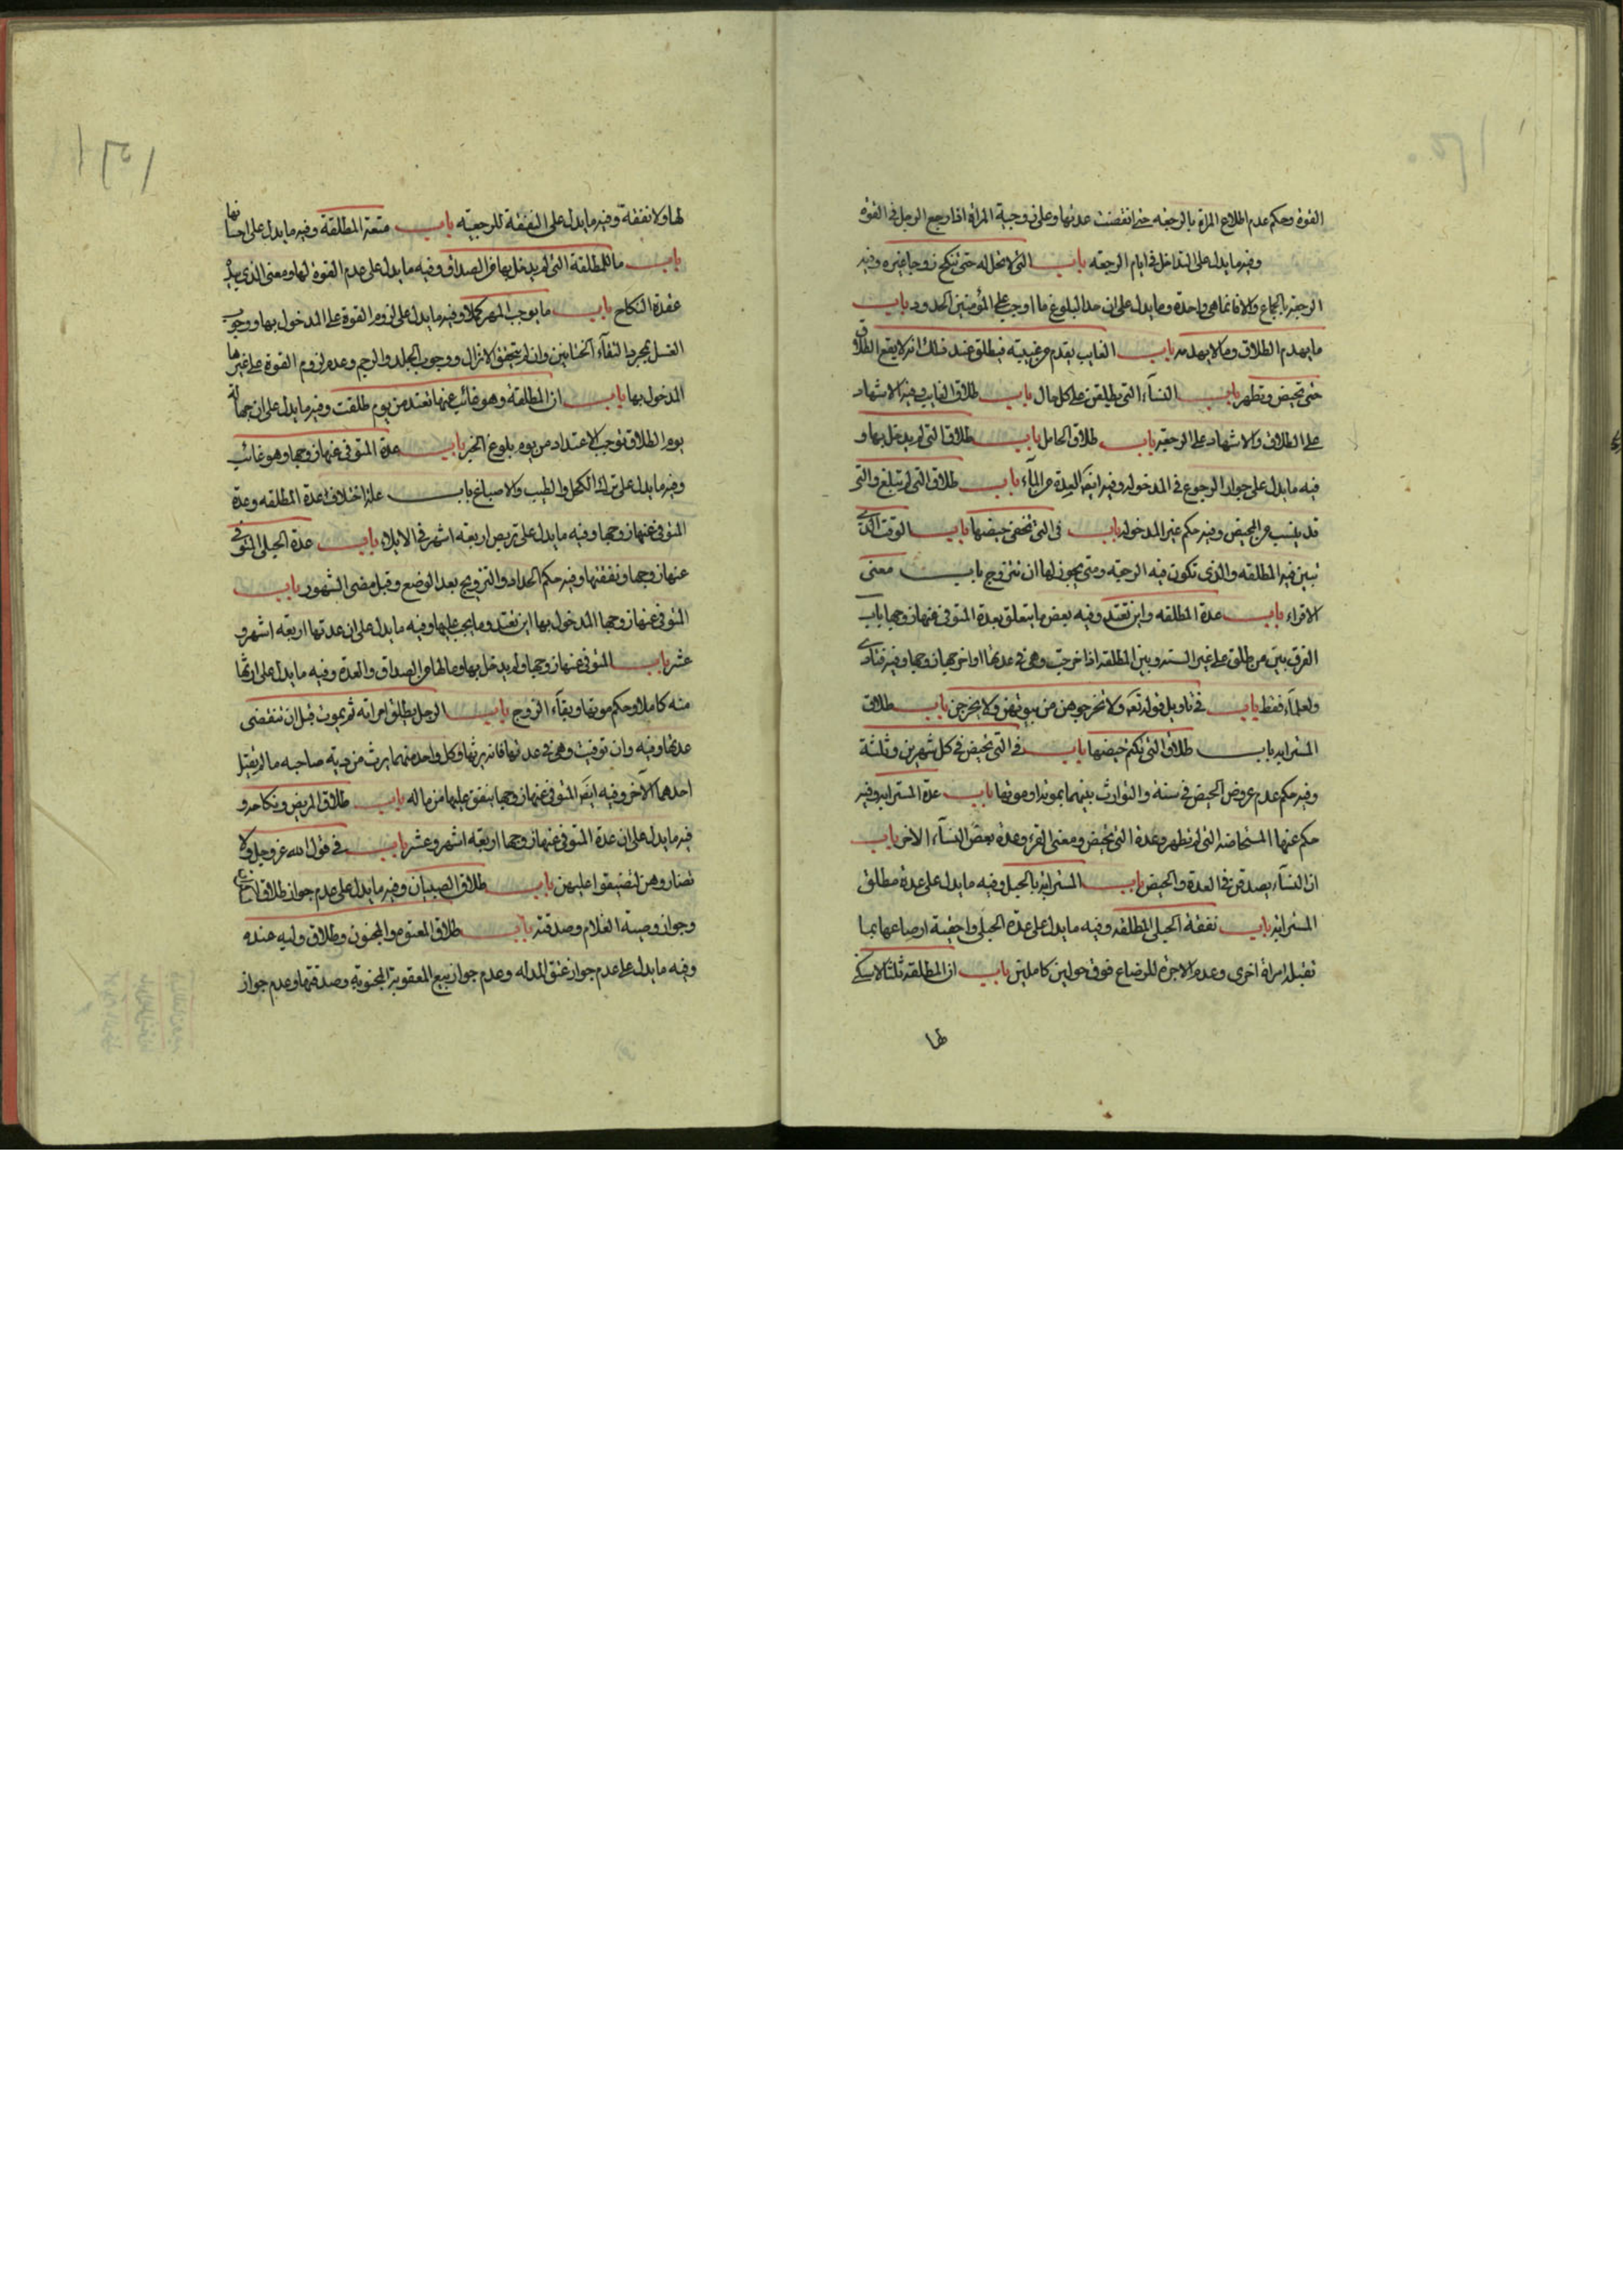 القوة وحكم عدم اطلاع المراة بالرجعة حتى انقضت عدتها وعلى زوجية المراة اذا رجع الرجل فى القوة
وفيه ما يدل على التداخل فى ايام الرجعة باب التى لا تحل له حتى تنكح زوجا غيره وفيه
الرجعة بالجماع والا فانما هى واحدة وما يدل على ان حد البلوغ ما اوجب على المؤمنين الحدود باب
ما يهدم الطلاق وما لا يهدمه باب الغايب يقدم من غيبته فيطلق عند ذلك انه لا يقع الطلاق
حتى تحيض وتطهر باب النسآء التى يطلقن على كل حال باب طلاق الغايب وفيه الاشهاد
على الطلاق والاشهاد على الرجعة باب طلاق الحامل باب طلاق التى لم يدخل بها و
فيه ما يدل على جواز الرجوع فى المدخولة وفيه ايضا العدة من المآء باب طلاق التى لم تبلغ والتى
قد يئست من المحيض وفيه حكم غير المدخولة باب فى التى تخفى حيضها باب الوقت الذى
تبين فيه المطلقه والذى تكون فيه الرجعة ومتى يجوز لها ان تتزوج باب معنى
الاقراء باب عدة المطلقه واين تعتد وفيه بعض ما يتعلق بعدة المتوفى عنها زوجها باب
الفرق بين من طلق على غير السنة وبين المطلقة اذا خرجت وهى فى عدتها او اخرجها زوجها وفيه فتاوى
ولعلمآء فقط باب فى تاويل قوله تعه ولا تخرجوهن من بيوتهن ولا يخرجن باب طلاق
المسترابه باب طلاق التى تكتم حيضها باب فى التى تحيض فى كل شهرين وثلثة
وفيه حكم عدم عروض الحيض فى سنة والتوارث بينهما بموته او موتها باب عدة المسترابه وفيه
حكم عنها المستحاضه التى لم تطهر وعدة التى تحيض ومعنى القرء وعدة بعض النسآء الاخر باب
ان النسآء يصدقن فى العدة والحيض باب المسترابه بالحبل وفيه ما يدل على عدة مطلق
المسترابه باب نفقة الحبلى المطلقه وفيه ما يدل على عدة الحبلى واحقية ارضاعها بما
تقبله امراة اخرى وعدم الاجرة للرضاع فوق حولين كاملين باب ان المطلقه ثلثا لا سكنى
لها
لها ولا نفقة وفيه ما يدل على النفقة للرجعية باب متعة المطلقة وفيه ما يدل على احسانها
باب ما للمطلقة التى لم يدخل بها من الصداق وفيه ما يدل على عدم القوة لها ومعنى الذى بيده
عقدة النكاح باب ما يوجب المهر كملا وفيه ما يدل على لزوم القوة على المدخول بها ووجوب
الغسل بمجرد التقآء الختانين وان لم يتحقق الانزال ووجوب الجلد والرجم وعدم لزوم القوة على غيرها
المدخول بها باب ان المطلقة وهو غائب عنها تعتد من يوم طلقت وفيه ما يدل على ان جهالة
يوم الطلاق توجب الاعتداد من يوم بلوغ الخبر باب عدة المتوفى عنها زوجها وهو غائب
وفيه ما يدل على ترك الكحل والطيب والاصباغ باب علة اختلاف عدة المطلقه وعدة
المتوفى عنها زوجها وفيه ما يدل على تربص اربعة اشهر فى الايلاء باب عدة الحبلى المتوفى
عنها زوجها ونفقتها وفيه حكم الحداد والتزويج بعد الوضع وقبل مضى الشهور باب
المتوفى عنها زوجها المدخول بها اين تعتد وما يجب عليها وفيه ما يدل على ان عدتها اربعة اشهر و
عشر باب المتوفى عنها زوجها ولم يدخل بها وما لها من الصداق والعدة وفيه ما يدل على ارثها
منه كاملا وحكم موتها وبقآء الزوج باب الرجل يطلق امراته ثم يموت قبل ان تنقضى
عدتها وفيه وان توفيت وهى فى عدتها فانه يرثها وكل واحد منهما يرث من دية صاحبه ما لم يقتل
احدهما الآخر وفيه ايضا المتوفى عنها زوجها ينفق عليها من ماله باب طلاق المريض ونكاحه و
فيه ما يدل على ان عدة المتوفى عنها زوجها اربعة اشهر وعشر باب فى قول الله عز وجل ولا
تضاروهن لتضيقوا عليهن باب طلاق الصبيان وفيه ما يدل على عدم جواز طلاق
وجواز وصية الغلام وصدقته باب طلاق المعتوه والمجنون وطلاق وليه عنده
وفيه ما يدل على عدم جواز عتق المدله وعدم جواز بيع المعتوهة المجنونة وصدقتها وعدم جواز